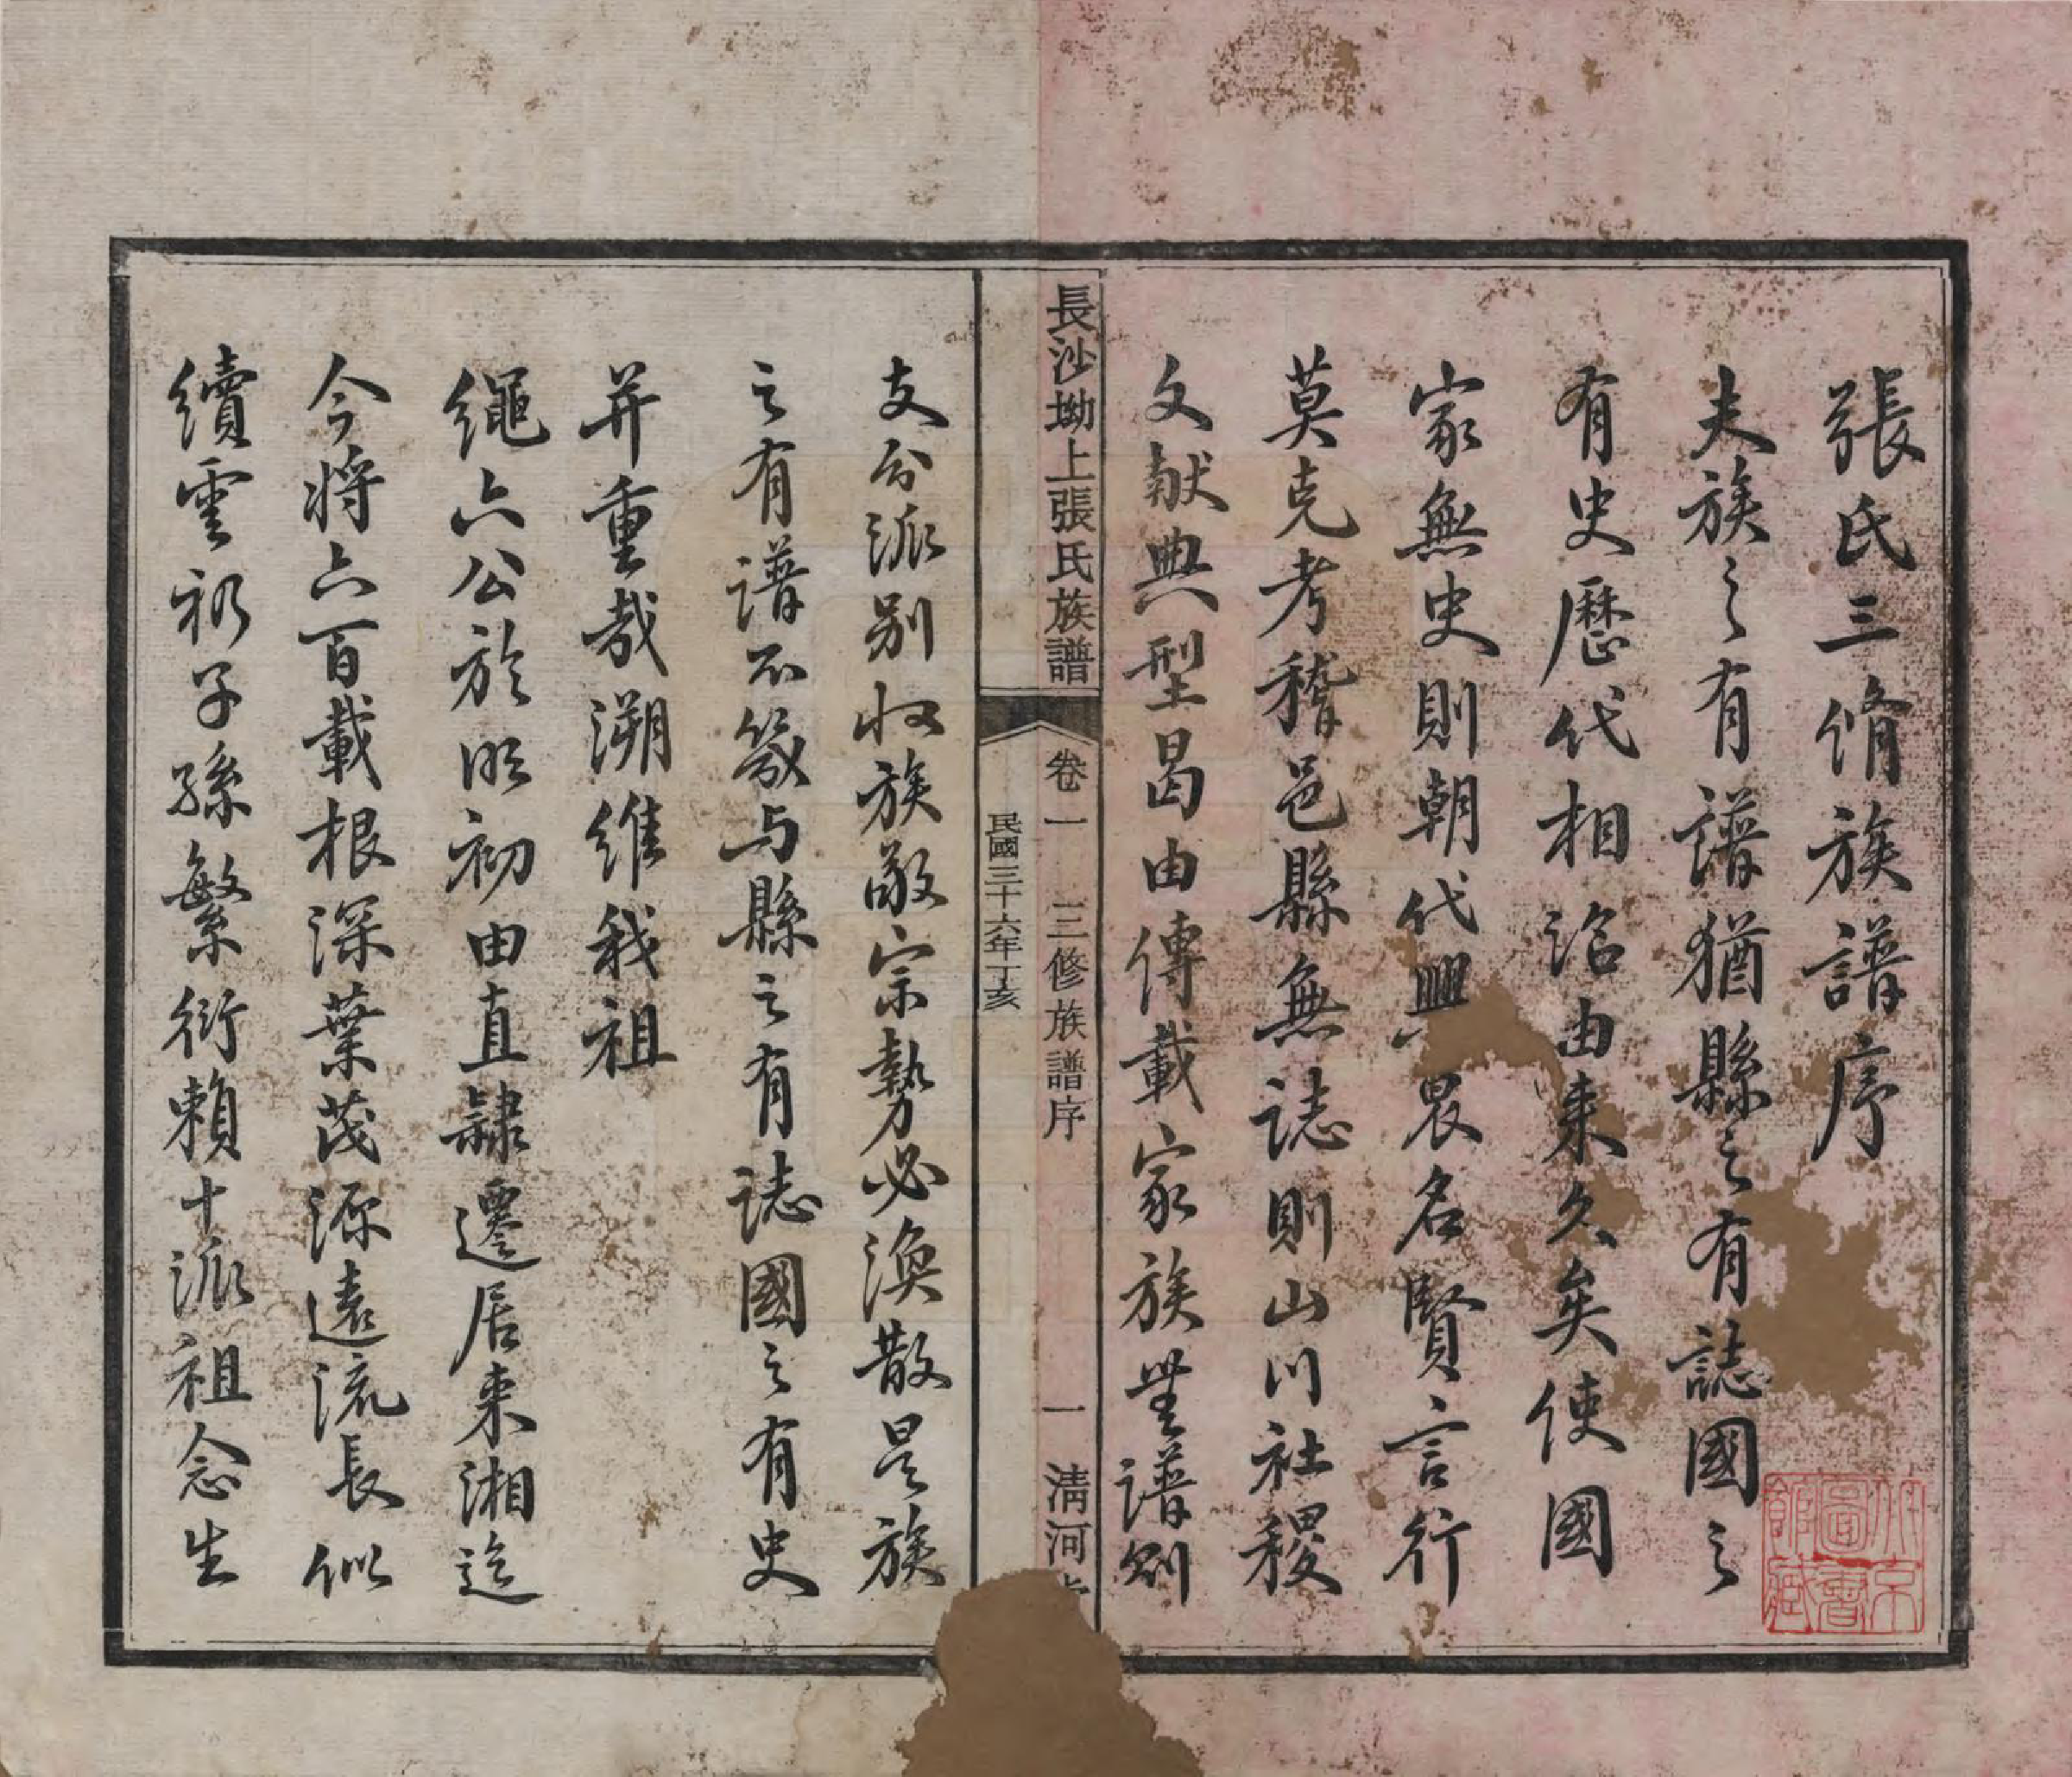 張氏三脩族譜序
夫族之有譜猶縣之有誌國之
有史歷代相沿由来久矣使國
家無史則朝代興衰名賢言行
莫克考稽邑縣無誌則山川社稷
文献典型曷由傳載家族無譜則
長沙坳上張氏族譜
卷一 三修族譜序
一 清河
民國三十六年丁亥
支分派别收族敬宗勢必渙散是族
之有譜不啻与縣之有誌國之有史
并重哉溯維我祖
繩六公於明初由直隸遷居来湘迄
今将六百載根深葉茂源遠流長似
續雲礽子孫繁衍賴十派祖念生
北京
圖書
館藏